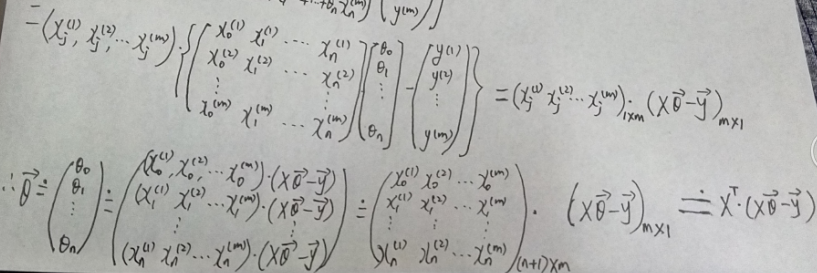 +θₙxₙ⁽ᵐ⁾) (y⁽ᵐ⁾)]
= (xⱼ⁽¹⁾, xⱼ⁽²⁾, ... xⱼ⁽ᵐ⁾) · { ( x₀⁽¹⁾ x₁⁽¹⁾ ... xₙ⁽¹⁾ ; x₀⁽²⁾ x₁⁽²⁾ ... xₙ⁽²⁾ ; ⋮ ⋮ ; x₀⁽ᵐ⁾ x₁⁽ᵐ⁾ ... xₙ⁽ᵐ⁾ ) ( θ₀ ; θ₁ ; ⋮ ; θₙ ) - ( y⁽¹⁾ ; y⁽²⁾ ; ⋮ ; y⁽ᵐ⁾ ) } = (xⱼ⁽¹⁾ xⱼ⁽²⁾ ... xⱼ⁽ᵐ⁾)_{1×m} · (Xθ⃗ - y⃗)_{m×1}
∴ θ⃗ ≐ ( θ₀ ; θ₁ ; ⋮ ; θₙ ) ≐ ( (x₀⁽¹⁾, x₀⁽²⁾, ... x₀⁽ᵐ⁾)·(Xθ⃗ - y⃗) ; (x₁⁽¹⁾ x₁⁽²⁾ ... x₁⁽ᵐ⁾)·(Xθ⃗ - y⃗) ; ⋮ ⋮ ; (xₙ⁽¹⁾ xₙ⁽²⁾ ... xₙ⁽ᵐ⁾)·(Xθ⃗ - y⃗) ) ≐ ( x₀⁽¹⁾ x₀⁽²⁾ ... x₀⁽ᵐ⁾ ; x₁⁽¹⁾ x₁⁽²⁾ ... x₁⁽ᵐ⁾ ; ⋮ ⋮ ⋮ ; xₙ⁽¹⁾ xₙ⁽²⁾ ... xₙ⁽ᵐ⁾ )_{(n+1)×m} · (Xθ⃗ - y⃗)_{m×1} ≐ Xᵀ·(Xθ⃗ - y⃗)